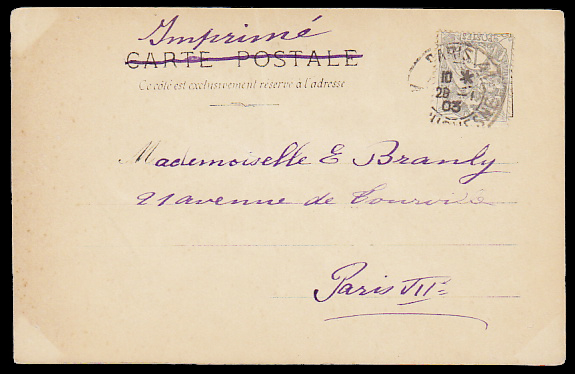 Imprimé
CARTE POSTALE
Ce côté est exclusivement réservé à l'adresse
PARIS
10 *
28
03
Mademoiselle E Branly
21 avenue de Tourville
Paris VII